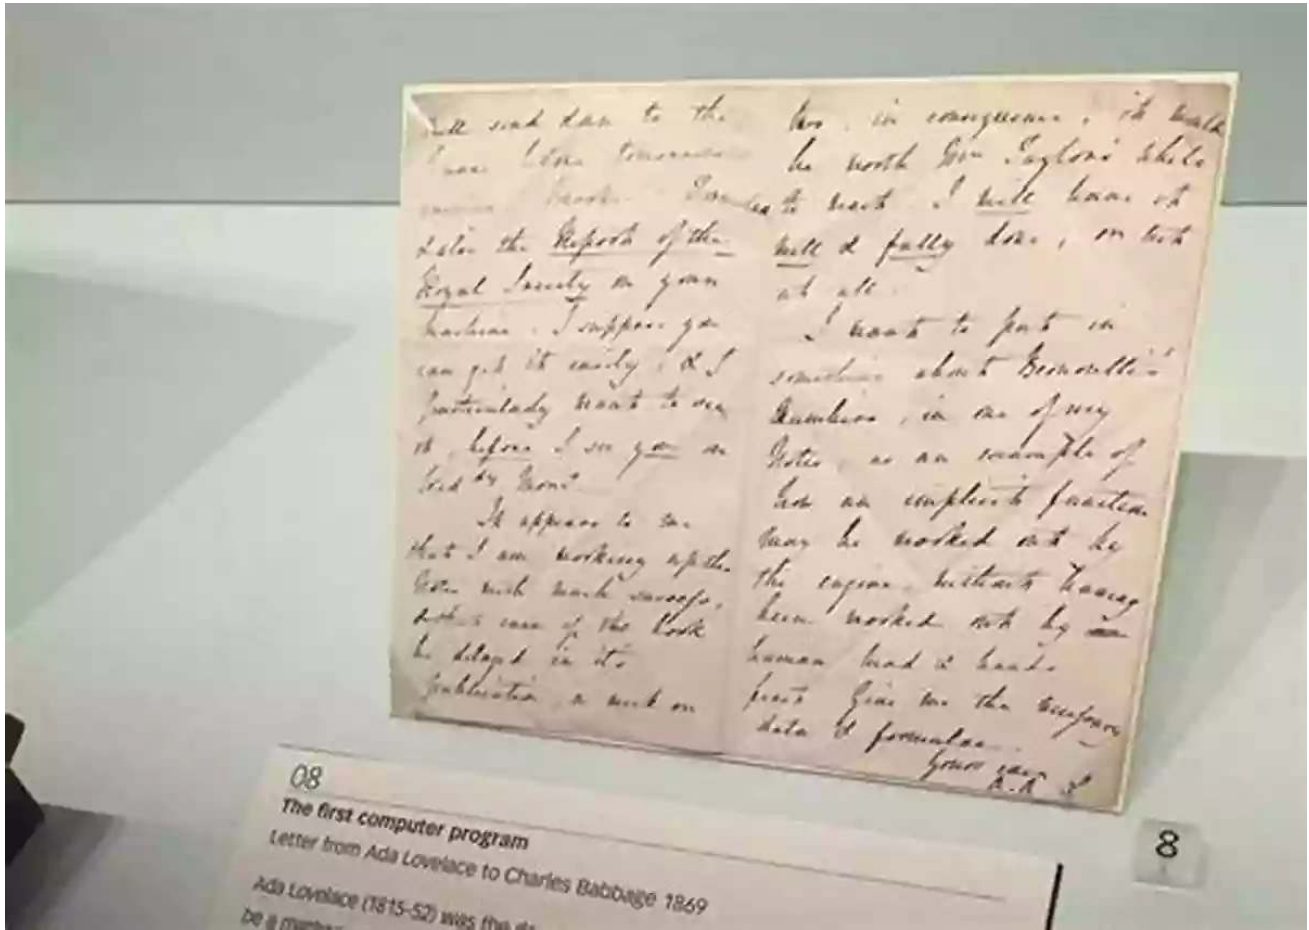 will send down to the
tomorrow
& also the Report of the
Royal Society on your
machine. I suppose you
can get it easily, & I
particularly want to see
it, before I see you on
It appears to me
that I am working up the
Notes with much success;
& that even if the book
be delayed in it's
publication, a week or
two, in consequence, it would
be worth Mr Taylor's while
to wait. I will have it
well & fully done; or not
at all.
I want to put in
something about Bernoulli's
Numbers, in one of my
Notes, as an example of
how an implicit function
may be worked out by
the engine, without having
been worked out by
human head & hands
first. Give me the necessary
data & formulae.
Yours ever
A.A.L
08
The first computer program
Letter from Ada Lovelace to Charles Babbage 1869
Ada Lovelace (1815-52) was the
be a
8